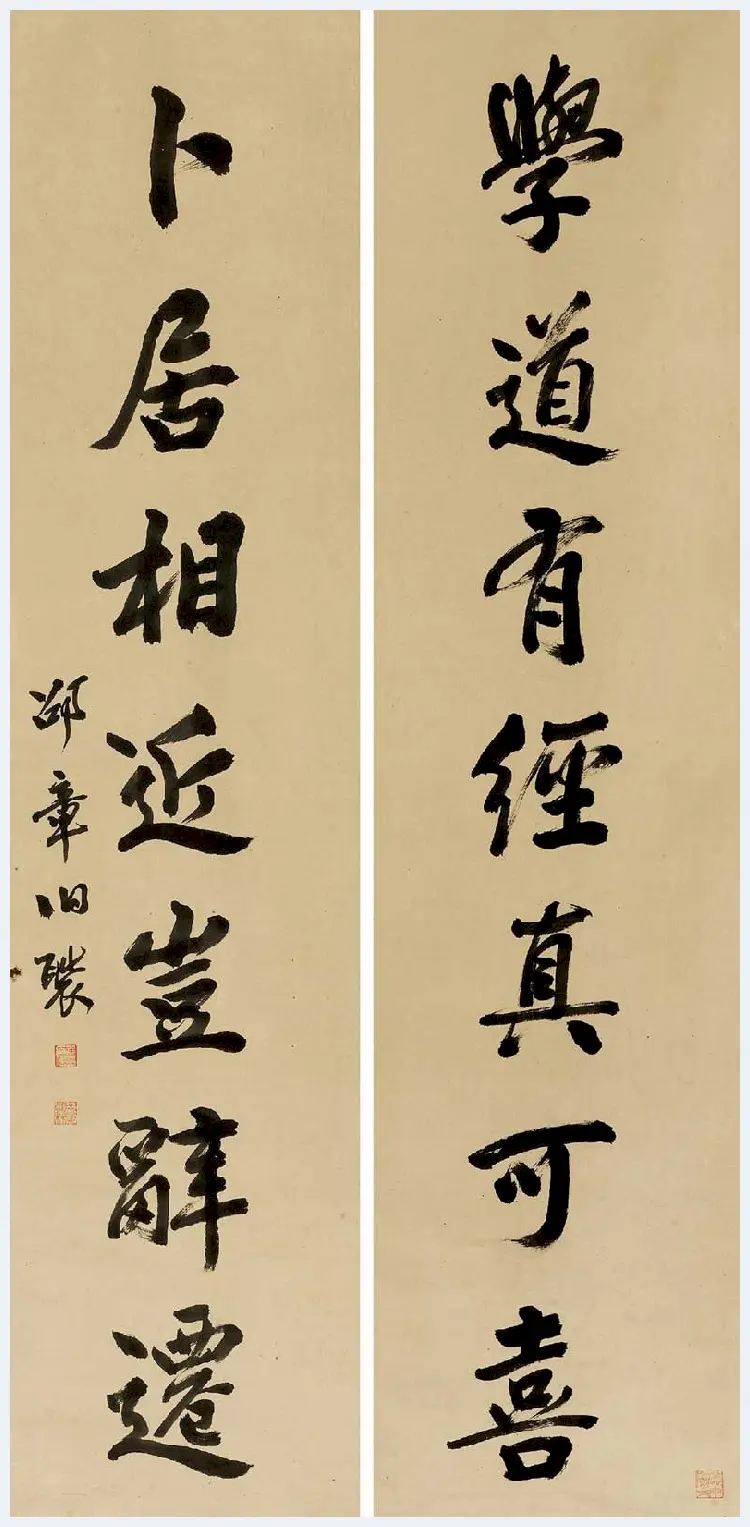 學道有經真可喜
卜居相近豈辭遷
邵章伯褧